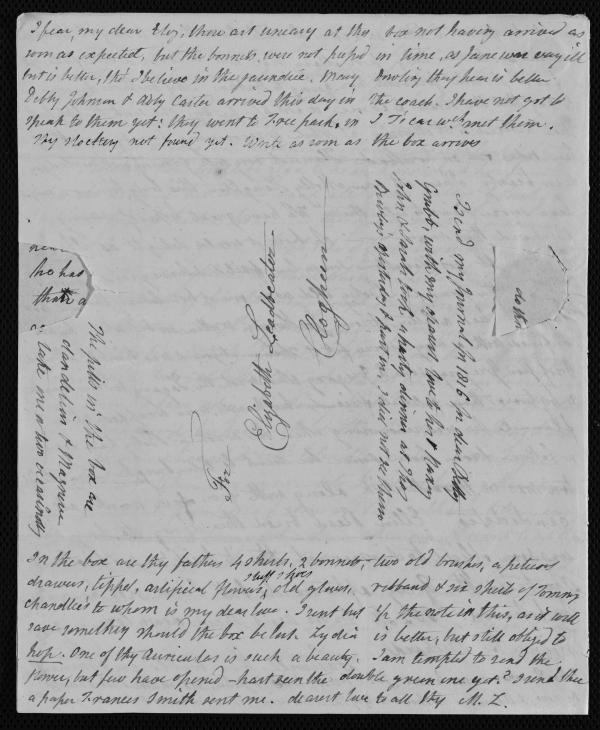 I fear, my dear Eliz, thou art uneasy at the box not having arrived as
soon as expected, but the bonnets were not pap'd in time, as Jane was very ill
but is better, tho' I believe in the jaundice. Mary Dowling thou hear is better
Debby Johnson & Abby Carter arrived this day in the coach. I have not got to
speak to them yet: they went to Tree park, in J T's car wch met them.
Thy stocking not found yet. Write as soon as the box arrives
near
he has
that
The pills in the box are
dandelion &
take me a two occasionally
Elizabeth Leadbeater
I send my Journal for 1816 for dear Debby
Grubb, with my dearest love to her &
John & Sarah took a party dinner at Thos
yesterday & part in, I did not see them
In the box are thy father's 4 shirts, 2 bonnets, two old brushes, a petticoat
drawers, tippet, artificial flowers, stuff shoes old gloves, ribband & six sheets of Tommy
Chandlee's to whom is my dear love. I sent but the note in this, as it will
save something should the box be lost. Lydia is better, but still obliged to
hop. One of thy Auriculas is such a beauty, I am tempted to send the
flower, but few have opened - hast seen the double green one yet? I send thee
a paper Frances Smith sent me. dearest love to all thy M. L.